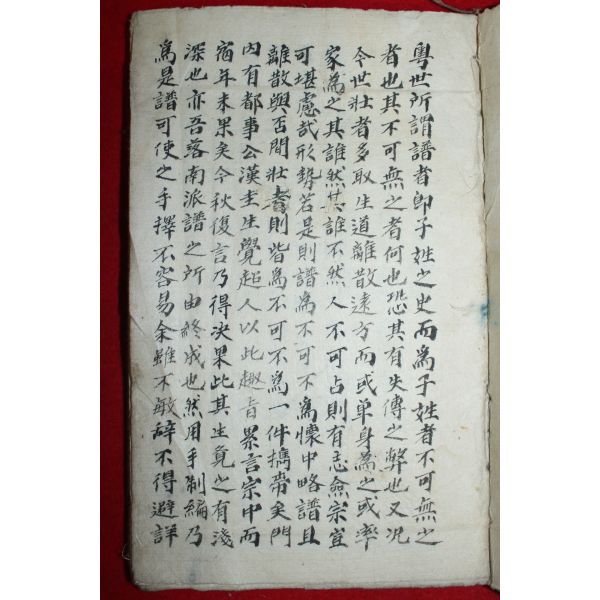 粤世所謂譜者卽子姓之史而爲子姓者不可無之
者也其不可無之者何也恐其有失傳之弊也又况
今世壯者多取生道離散遠方而或单身爲之或率
家爲之其誰然其誰不然人不可占則有志僉宗豈
可堪慮哉形勢若是則譜爲不可不爲懷中略譜且
離散與否間壯耉則皆爲不可不爲一件携帶矣門
內有都事公漢圭生覺超人以此趣旨累言宗中而
宿年未果矣今秋復言乃得决果此其生覚之有淺
深也亦吾落南派譜之所由終成也然用手制編乃
爲是譜可使之手擇不容易余雖不敏辭不得避詳